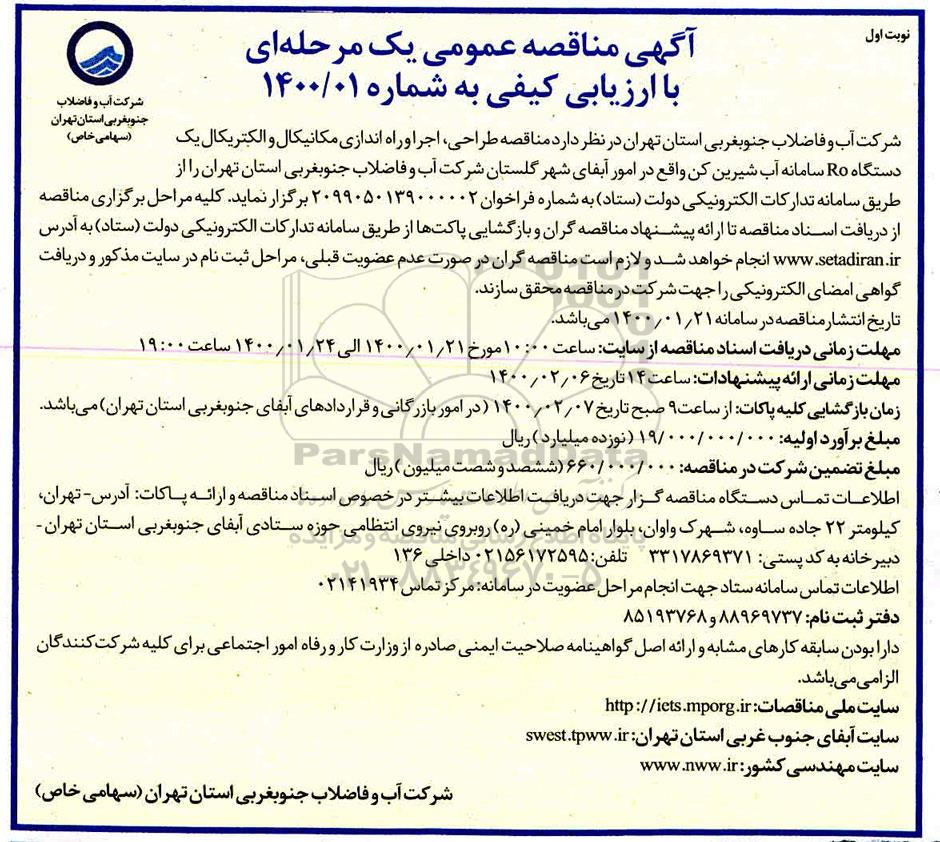 نوبت اول
آگهی مناقصه عمومی یک مرحله‌ای
با ارزیابی کیفی به شماره ۱۴۰۰/۰۱
شرکت آب و فاضلاب
جنوبغربی استان تهران
(سهامی خاص)
شرکت آب و فاضلاب جنوبغربی استان تهران در نظر دارد مناقصه طراحی، اجرا و راه اندازی مکانیکال و الکتریکال یک
دستگاه Ro سامانه آب شیرین کن واقع در امور آبفای شهر گلستان شرکت آب و فاضلاب جنوبغربی استان تهران را از
طریق سامانه تدارکات الکترونیکی دولت (ستاد) به شماره فراخوان ۲۰۹۹۰۵۰۱۳۹۰۰۰۰۰۲ برگزار نماید. کلیه مراحل برگزاری مناقصه
از دریافت اسناد مناقصه تا ارائه پیشنهاد مناقصه گران و بازگشایی پاکت‌ها از طریق سامانه تدارکات الکترونیکی دولت (ستاد) به آدرس
www.setadiran.ir انجام خواهد شد و لازم است مناقصه گران در صورت عدم عضویت قبلی، مراحل ثبت نام در سایت مذکور و دریافت
گواهی امضای الکترونیکی را جهت شرکت در مناقصه محقق سازند.
تاریخ انتشار مناقصه در سامانه ۱۴۰۰/۰۱/۲۱ می‌باشد.
مهلت زمانی دریافت اسناد مناقصه از سایت: ساعت ۱۰:۰۰ مورخ ۱۴۰۰/۰۱/۲۱ الی ۱۴۰۰/۰۱/۲۴ ساعت ۱۹:۰۰
مهلت زمانی ارائه پیشنهادات: ساعت ۱۴ تاریخ ۱۴۰۰/۰۲/۰۶
زمان بازگشایی کلیه پاکات: از ساعت ۹ صبح تاریخ ۱۴۰۰/۰۲/۰۷ (در امور بازرگانی و قراردادهای آبفای جنوبغربی استان تهران) می‌باشد.
مبلغ برآورد اولیه: ۱۹/۰۰۰/۰۰۰/۰۰۰ (نوزده میلیارد) ریال
مبلغ تضمین شرکت در مناقصه: ۶۶۰/۰۰۰/۰۰۰ (ششصد و شصت میلیون) ریال
اطلاعات تماس دستگاه مناقصه گزار جهت دریافت اطلاعات بیشتر در خصوص اسناد مناقصه و ارائه پاکات: آدرس- تهران،
کیلومتر ۲۲ جاده ساوه، شهرک واوان، بلوار امام خمینی (ره) روبروی نیروی انتظامی حوزه ستادی آبفای جنوبغربی استان تهران -
دبیرخانه به کد پستی: ۳۳۱۷۸۶۹۳۷۱ تلفن: ۰۲۱۵۶۱۷۲۵۹۵ داخلی ۱۳۶
اطلاعات تماس سامانه ستاد جهت انجام مراحل عضویت در سامانه: مرکز تماس ۰۲۱۴۱۹۳۴
دفتر ثبت نام: ۸۸۹۶۹۷۳۷ و ۸۵۱۹۳۷۶۸
دارا بودن سابقه کارهای مشابه و ارائه اصل گواهینامه صلاحیت ایمنی صادره از وزارت کار و رفاه امور اجتماعی برای کلیه شرکت‌کنندگان
الزامی می‌باشد.
سایت ملی مناقصات: http://iets.mporg.ir
سایت آبفای جنوب غربی استان تهران: swest.tpww.ir
سایت مهندسی کشور: www.nww.ir
شرکت آب و فاضلاب جنوبغربی استان تهران (سهامی خاص)
ParsNamadData
۰۲۱-۸۸۳۴۹۶۷۰-۵